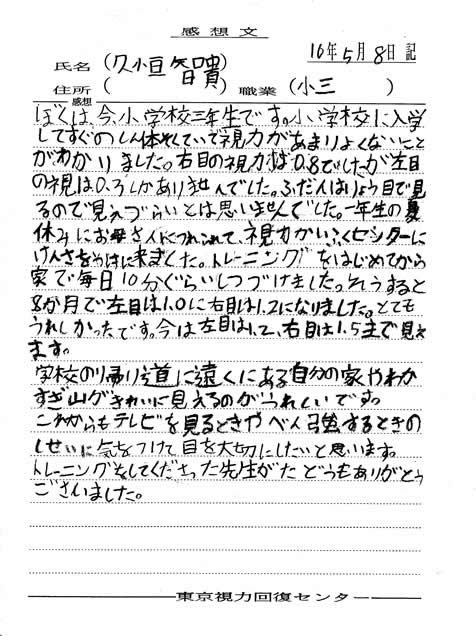 感想文
16年5月8日 記
氏名(久恒智貴)
住所( ) 職業(小三 )
感想
ぼくは、今、小学校三年生です。小学校に入学
してすぐのしん体そくていで視力があまりよくないこと
がわかりました。右目の視力は0.8でしたが左目
の視は0.3しかありませんでした。ふだんはりょう目で見
るので見えづらいとは思いませんでした。一年生の夏
休みにお母さんにつれられて、視力かいふくセンターに
けんさをうけに来ました。トレーニングをはじめてから
家で毎日10分ぐらいしつづけました。そうすると
8か月で左目は1.0に右目は1.2になりました。とても
うれしかったです。今は左目は1.2、右目は1.5まで見え
ます。
学校の帰り道に遠くにある自分の家やわか
すぎ山がきれいに見えるのがうれしいです。
これからもテレビを見るときやべん強するときの
しせいに気をつけて目を大切にしたいと思います。
トレーニングをしてくださった先生がたどうもありがとう
ございました。
東京視力回復センター